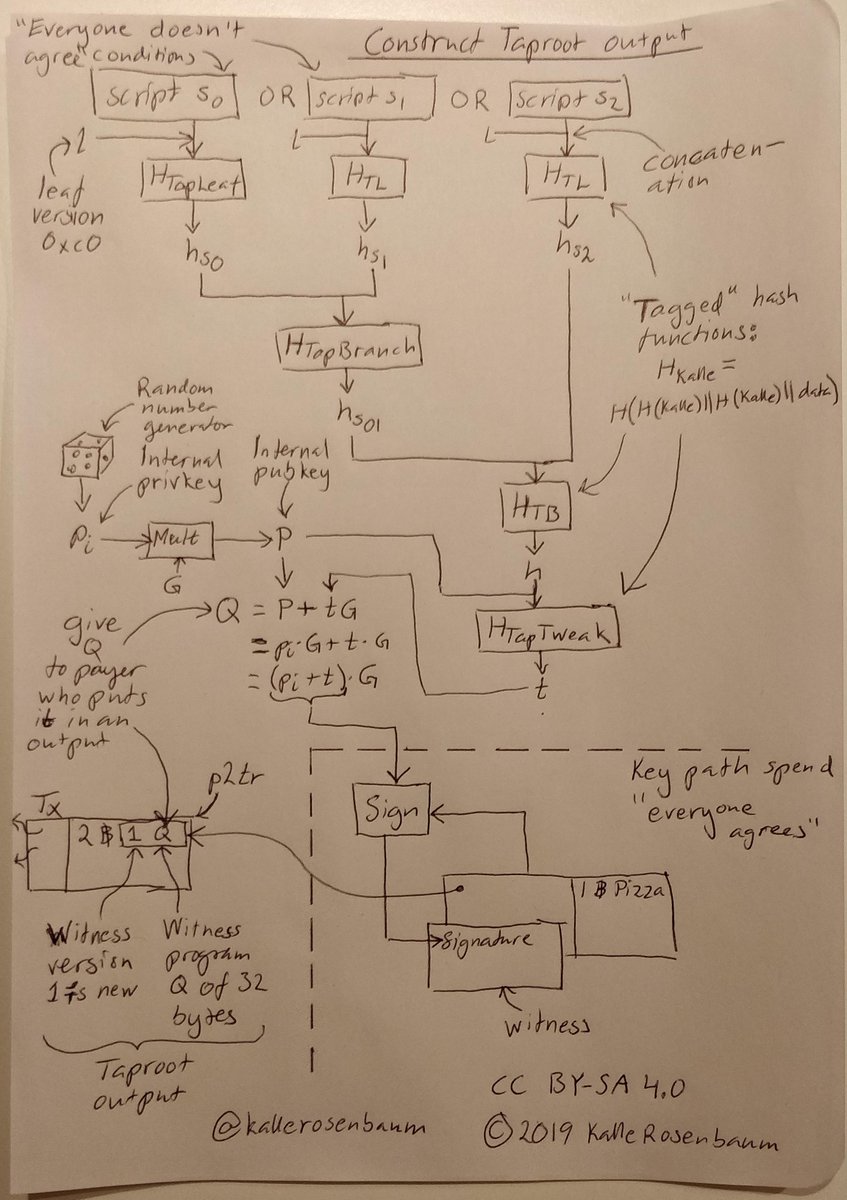 "Everyone doesn't
agree" conditions
Construct Taproot output
script s0 OR script s1 OR script s2
l
l
l
leaf
version
0xc0
HTapLeaf
HTL
HTL
concaten-
ation
hs0
hs1
hs2
"Tagged" hash
functions:
HKalle =
H(H(Kalle)||H(Kalle)||data)
HTapBranch
hs01
Random
number
generator
Internal
privkey
Internal
pubkey
pi
Mult
G
P
HTB
h
HTapTweak
t
give
Q
to payer
who puts
it in an
output
Q = P + tG
= pi·G + t·G
= (pi + t)·G
Key path spend
"everyone
agrees"
Sign
p2tr
Tx
2 ₿ 1 Q
1 ₿ Pizza
Signature
witness
Witness
version
1 is new
Witness
program
Q of 32
bytes
Taproot
output
CC BY-SA 4.0
@kallerosenbaum
© 2019 Kalle Rosenbaum